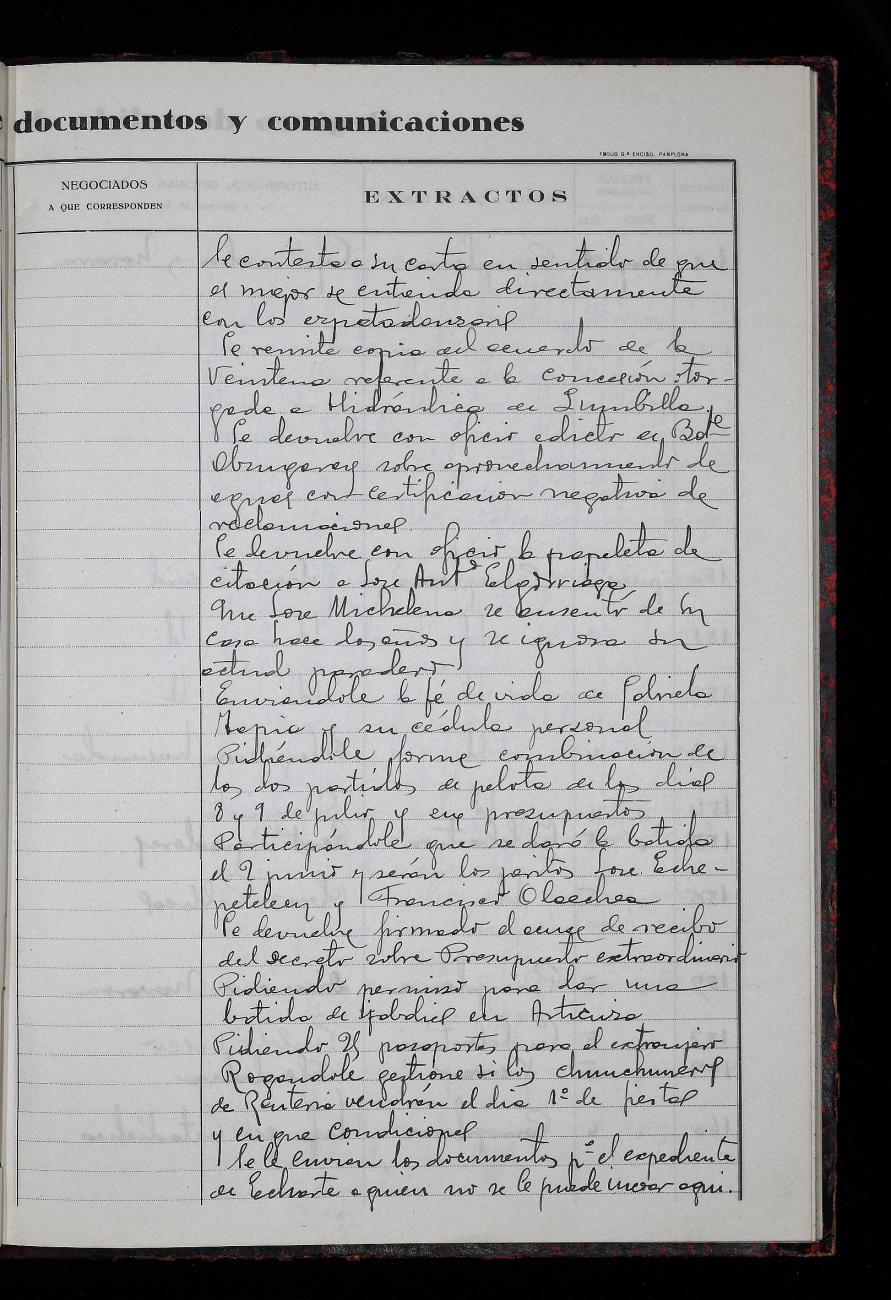 documentos y comunicaciones
EMILIO G.ª ENCISO. PAMPLONA
NEGOCIADOS
A QUE CORRESPONDEN
EXTRACTOS
Se contesta a su carta en sentido de que
es mejor se entienda directamente
con los espatadanzaris
Se remite copia del acuerdo de la
Veintena referente a la concesión otor-
gada a Hidráulica de Sumbilla
Se devuelve con oficio edicto de Bar.te
sobre aprovechamiento de
aguas con certificacion negativa de
reclamaciones.
Se devuelve con oficio la papeleta de
citación a Jose Antº Elgorriaga
Que Jose Michelena se ausentó de su
casa hace dos años y se ignora su
actual paradero
Enviandole la fé de vida de Gabriela
Tapia y su cédula personal
Pidiéndole forme combinación de
los dos partidos de pelota de los dias
8 y 9 de julio y en presupuestos
Participándole que se dará la batida
el 2 junio y serán los peritos Jose Eche-
y Francisco Olaechea
Se devuelve firmado el acuse de recibo
del decreto sobre Presupuesto extraordinario
Pidiendo permiso para dar una
batida de jabalies en Articuza
Pidiendo 25 pasaportes para el extranjero
Rogandole gestione si los chunchuneros
de Renteria vendrán el dia 1º de fiestas
y en que condiciones
Se le envian los documentos pª el expediente
de Echarte a quien no se le puede incoar aqui.